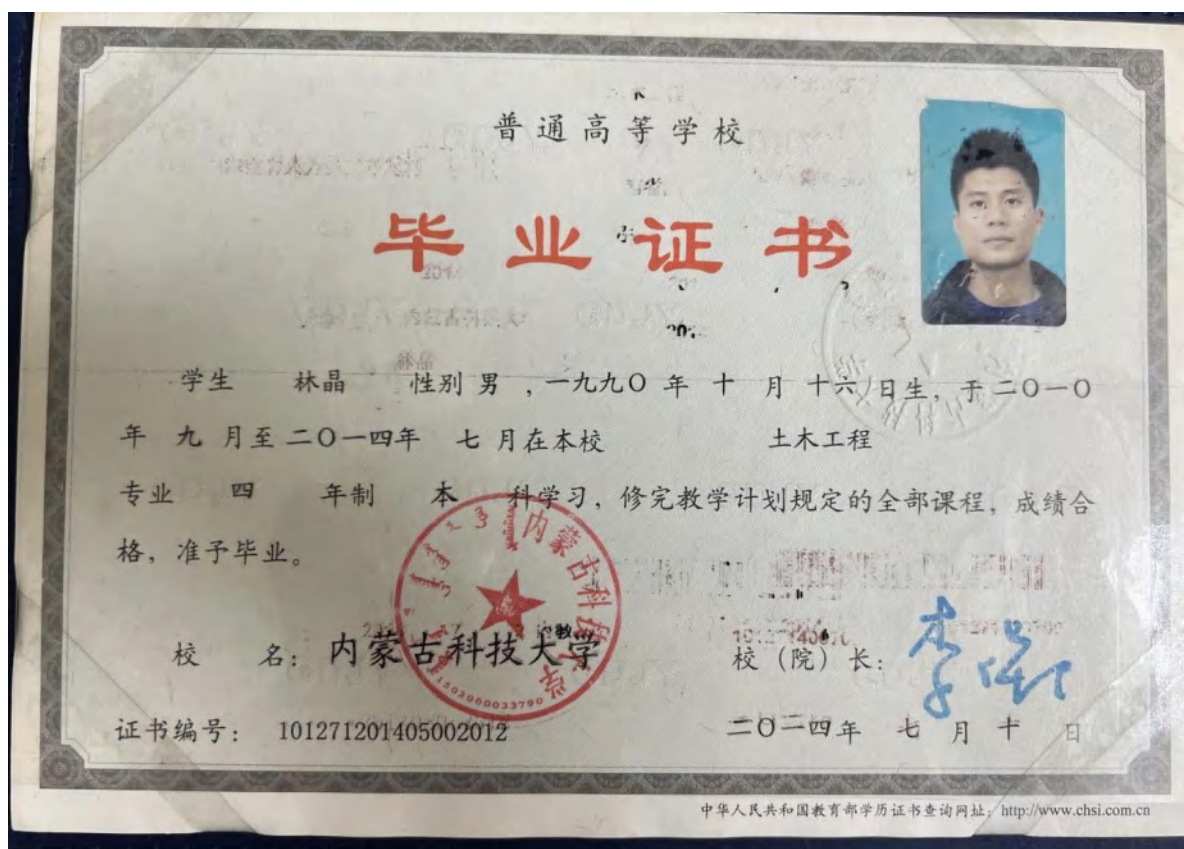 普通高等学校
毕业证书
学生 林晶 性别 男 ，一九九〇 年 十 月 十六 日生，于 二〇一〇
年 九 月至 二〇一四年 七 月在本校 土木工程
专业 四 年制 本 科学习，修完教学计划规定的全部课程，成绩合
格，准予毕业。
内蒙古科技大学
1502060033790
校 名： 内蒙古科技大学 校（院）长：
证书编号： 101271201405002012 二〇一四年 七 月 十 日
中华人民共和国教育部学历证书查询网址：http://www.chsi.com.cn